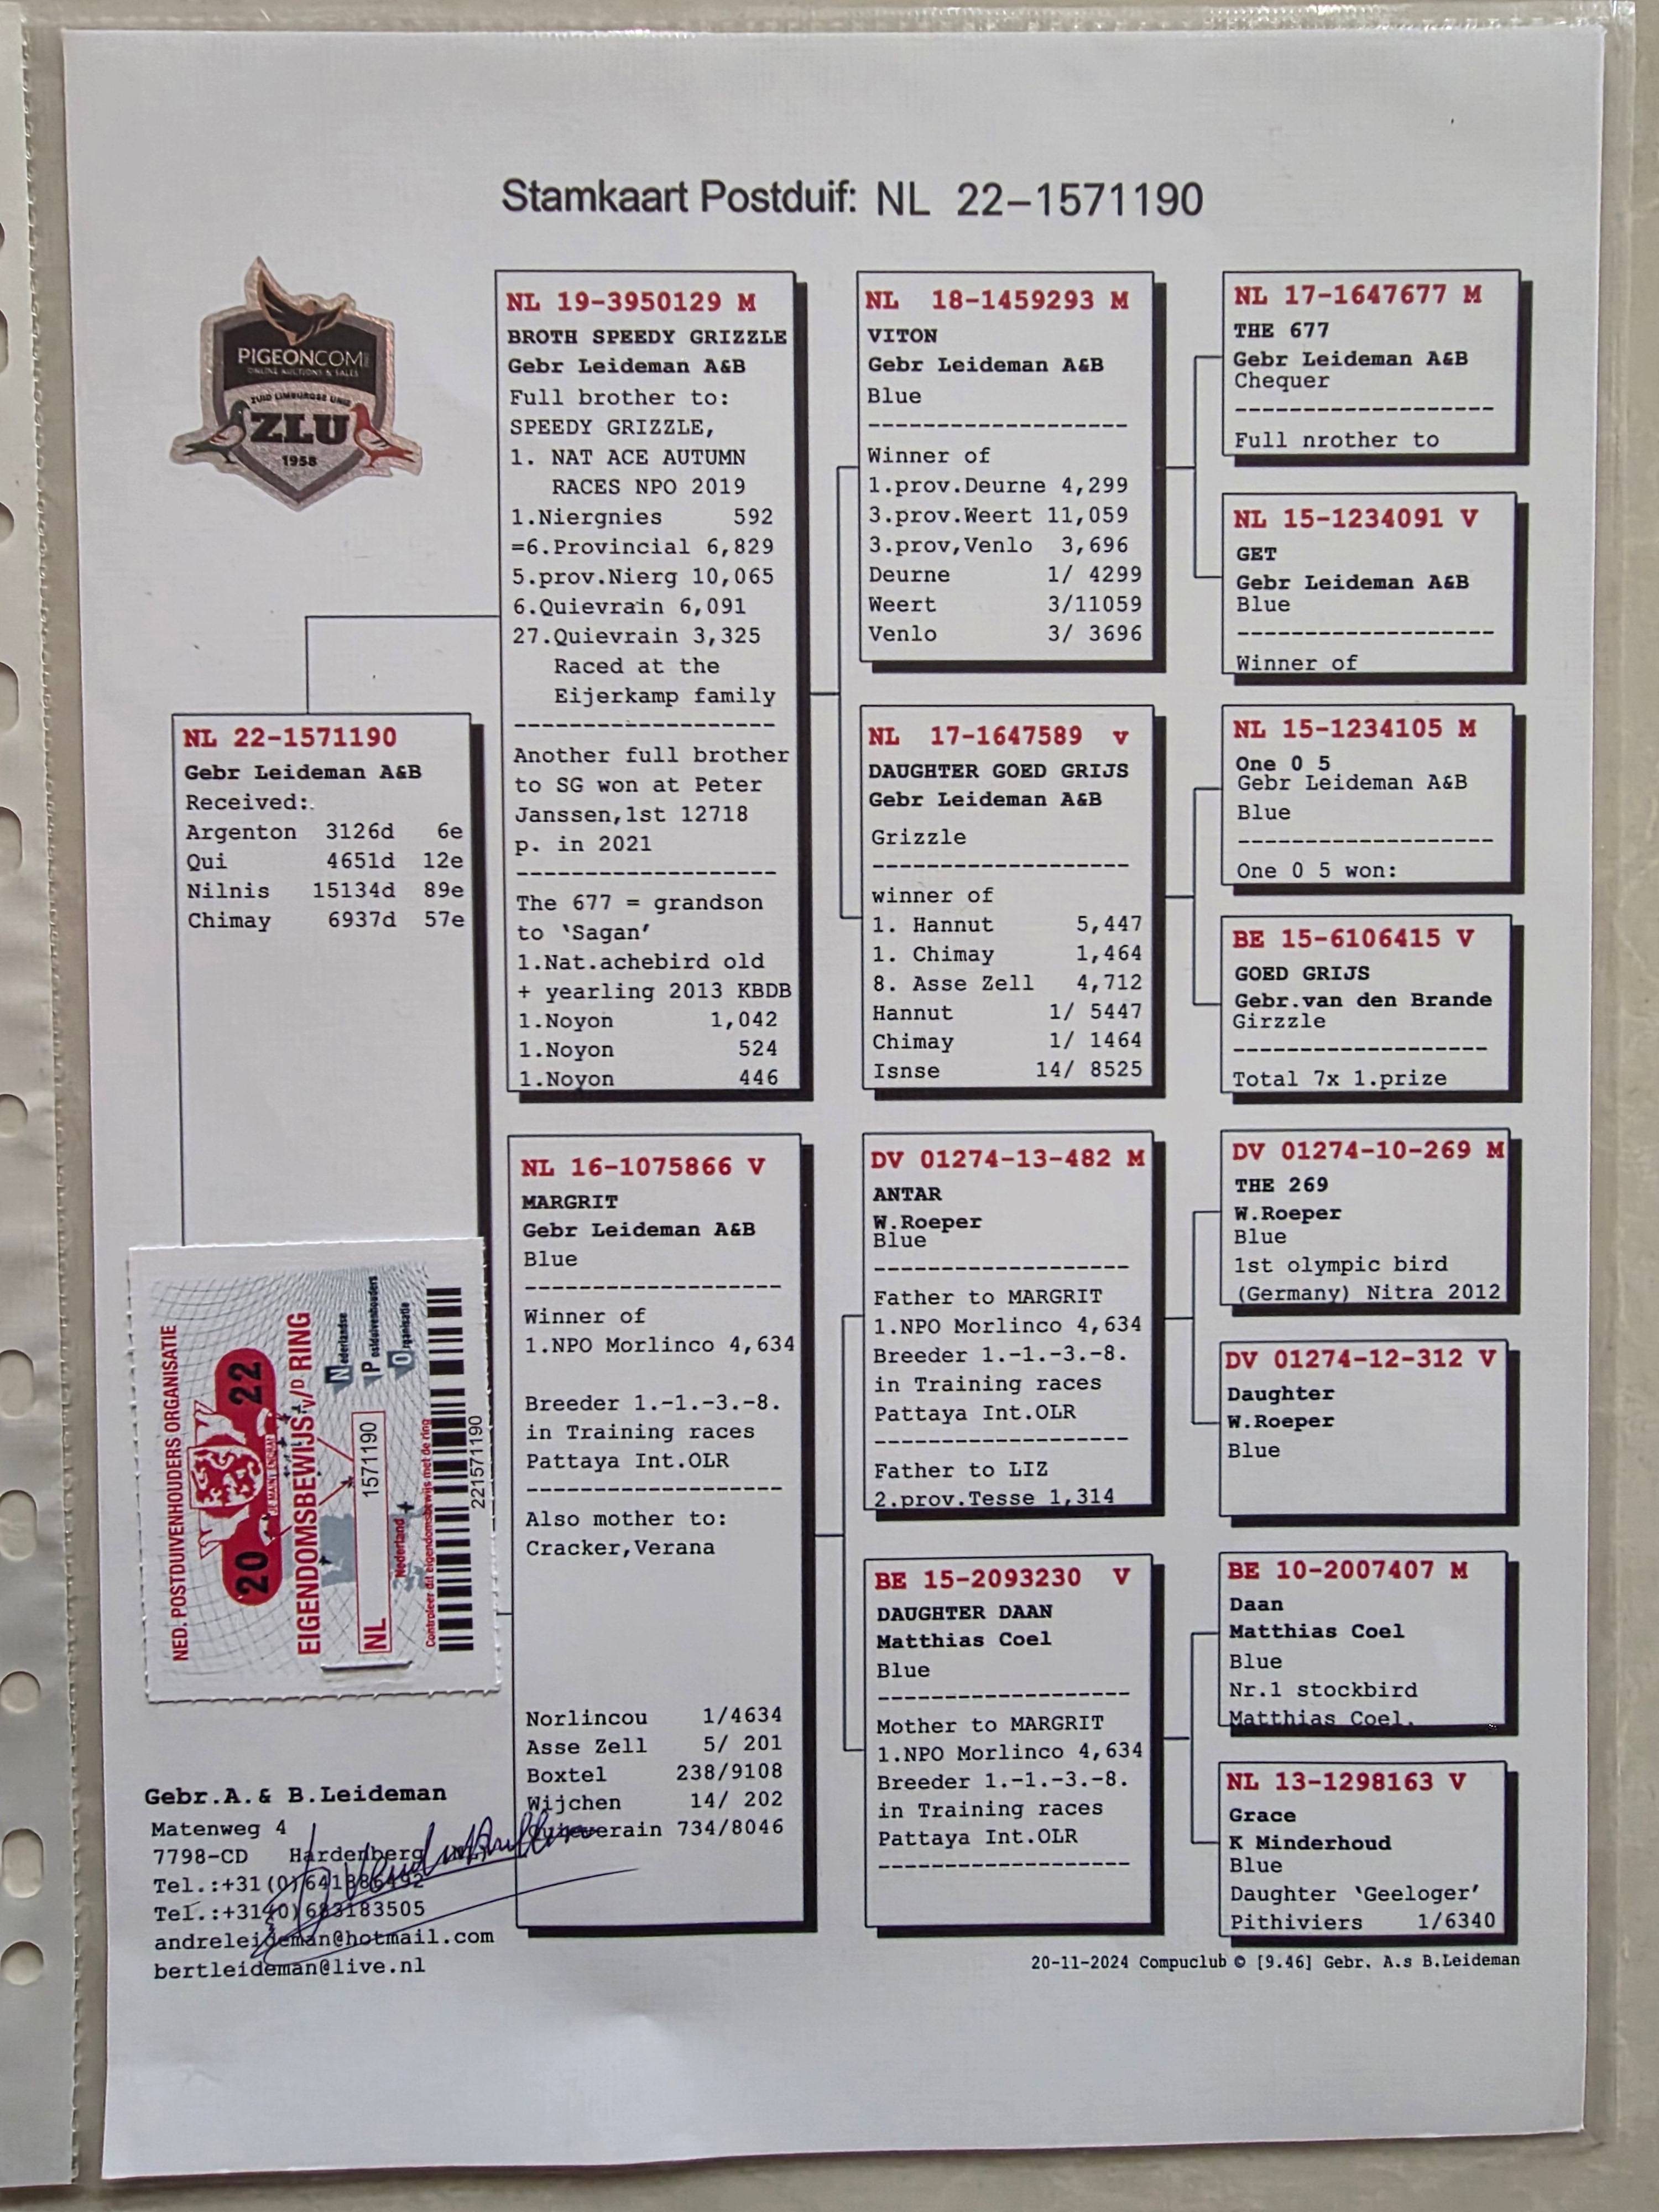 Stamkaart Postduif: NL 22-1571190
PIGEONCOM
ONLINE AUCTIONS & SALES
ZUID LIMBURGSE UNIE
ZLU
1958
NL 22-1571190
Gebr Leideman A&B
Received:.
Argenton 3126d 6e
Qui 4651d 12e
Nilnis 15134d 89e
Chimay 6937d 57e
NL 19-3950129 M
BROTH SPEEDY GRIZZLE
Gebr Leideman A&B
Full brother to:
SPEEDY GRIZZLE,
1. NAT ACE AUTUMN
RACES NPO 2019
1.Niergnies 592
=6.Provincial 6,829
5.prov.Nierg 10,065
6.Quievrain 6,091
27.Quievrain 3,325
Raced at the
Eijerkamp family
-------------------
Another full brother
to SG won at Peter
Janssen,1st 12718
p. in 2021
-------------------
The 677 = grandson
to ‘Sagan’
1.Nat.achebird old
+ yearling 2013 KBDB
1.Noyon 1,042
1.Noyon 524
1.Noyon 446
NL 16-1075866 V
MARGRIT
Gebr Leideman A&B
Blue
-------------------
Winner of
1.NPO Morlinco 4,634
Breeder 1.-1.-3.-8.
in Training races
Pattaya Int.OLR
-------------------
Also mother to:
Cracker,Verana
Norlincou 1/4634
Asse Zell 5/ 201
Boxtel 238/9108
Wijchen 14/ 202
Quieverain 734/8046
NL 18-1459293 M
VITON
Gebr Leideman A&B
Blue
-------------------
Winner of
1.prov.Deurne 4,299
3.prov.Weert 11,059
3.prov,Venlo 3,696
Deurne 1/ 4299
Weert 3/11059
Venlo 3/ 3696
NL 17-1647589 v
DAUGHTER GOED GRIJS
Gebr Leideman A&B
Grizzle
-------------------
winner of
1. Hannut 5,447
1. Chimay 1,464
8. Asse Zell 4,712
Hannut 1/ 5447
Chimay 1/ 1464
Isnse 14/ 8525
DV 01274-13-482 M
ANTAR
W.Roeper
Blue
-------------------
Father to MARGRIT
1.NPO Morlinco 4,634
Breeder 1.-1.-3.-8.
in Training races
Pattaya Int.OLR
-------------------
Father to LIZ
2.prov.Tesse 1,314
BE 15-2093230 V
DAUGHTER DAAN
Matthias Coel
Blue
-------------------
Mother to MARGRIT
1.NPO Morlinco 4,634
Breeder 1.-1.-3.-8.
in Training races
Pattaya Int.OLR
-------------------
NL 17-1647677 M
THE 677
Gebr Leideman A&B
Chequer
-------------------
Full nrother to
NL 15-1234091 V
GET
Gebr Leideman A&B
Blue
-------------------
Winner of
NL 15-1234105 M
One 0 5
Gebr Leideman A&B
Blue
-------------------
One 0 5 won:
BE 15-6106415 V
GOED GRIJS
Gebr.van den Brande
Girzzle
-------------------
Total 7x 1.prize
DV 01274-10-269 M
THE 269
W.Roeper
Blue
1st olympic bird
(Germany) Nitra 2012
DV 01274-12-312 V
Daughter
W.Roeper
Blue
BE 10-2007407 M
Daan
Matthias Coel
Blue
Nr.1 stockbird
Matthias Coel.
NL 13-1298163 V
Grace
K Minderhoud
Blue
Daughter ‘Geeloger’
Pithiviers 1/6340
NED. POSTDUIVENHOUDERS ORGANISATIE
20 22
JE MAINTIENDRAI
EIGENDOMSBEWIJS V/D RING
Nederlandse
Postduivenhouders
Organisatie
NL 1571190
Nederland
Controleer dit eigendomsbewijs met de ring
221571190
Gebr.A.& B.Leideman
Matenweg 4
7798-CD Hardenberg
Tel.:+31(0)641886492
Tel.:+31(0)683183505
andreleideman@hotmail.com
bertleideman@live.nl
20-11-2024 Compuclub © [9.46] Gebr. A.s B.Leideman